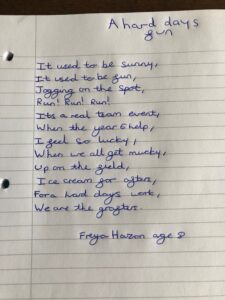 A hard days
fun
It used to be sunny,
It used to be fun,
Jogging on the spot,
Run! Run! Run!
Its a real team event,
When the year 6 help,
I feel so lucky,
When we all get mucky,
Up on the field,
Ice cream for afters,
For a hard days work,
We are the grafters.
Freya Hazon age 8